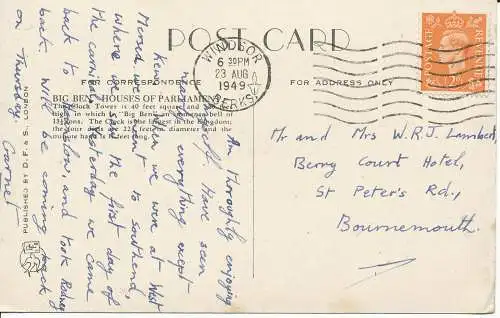 POST CARD
FOR CORRESPONDENCE
FOR ADDRESS ONLY
BIG BEN, HOUSES OF PARLIAMENT
The Clock Tower is 40 feet square and
high, in which is "Big Ben" an hour bell of
The Clock is the largest in the Kingdom;
the four dials 22½ feet in diameter and the
minute hands feet long.
PUBLISHED BY D. F. & S. LONDON
WINDSOR
6 30PM
23 AUG
1949
BERKS.
POSTAGE
REVENUE
2D
Am thoroughly enjoying
myself. Have seen
nearly everything except
Kew. When we were at West
Mersea we went to Southend,
where it was the first day of
the carnival. Yesterday we came
back to Hounslow, and took Rodney
back. Will be coming back
on Thursday.
Garnet
Mr and Mrs W.R.J. Lambert,
Berry Court Hotel,
St Peter's Rd.,
Bournemouth.